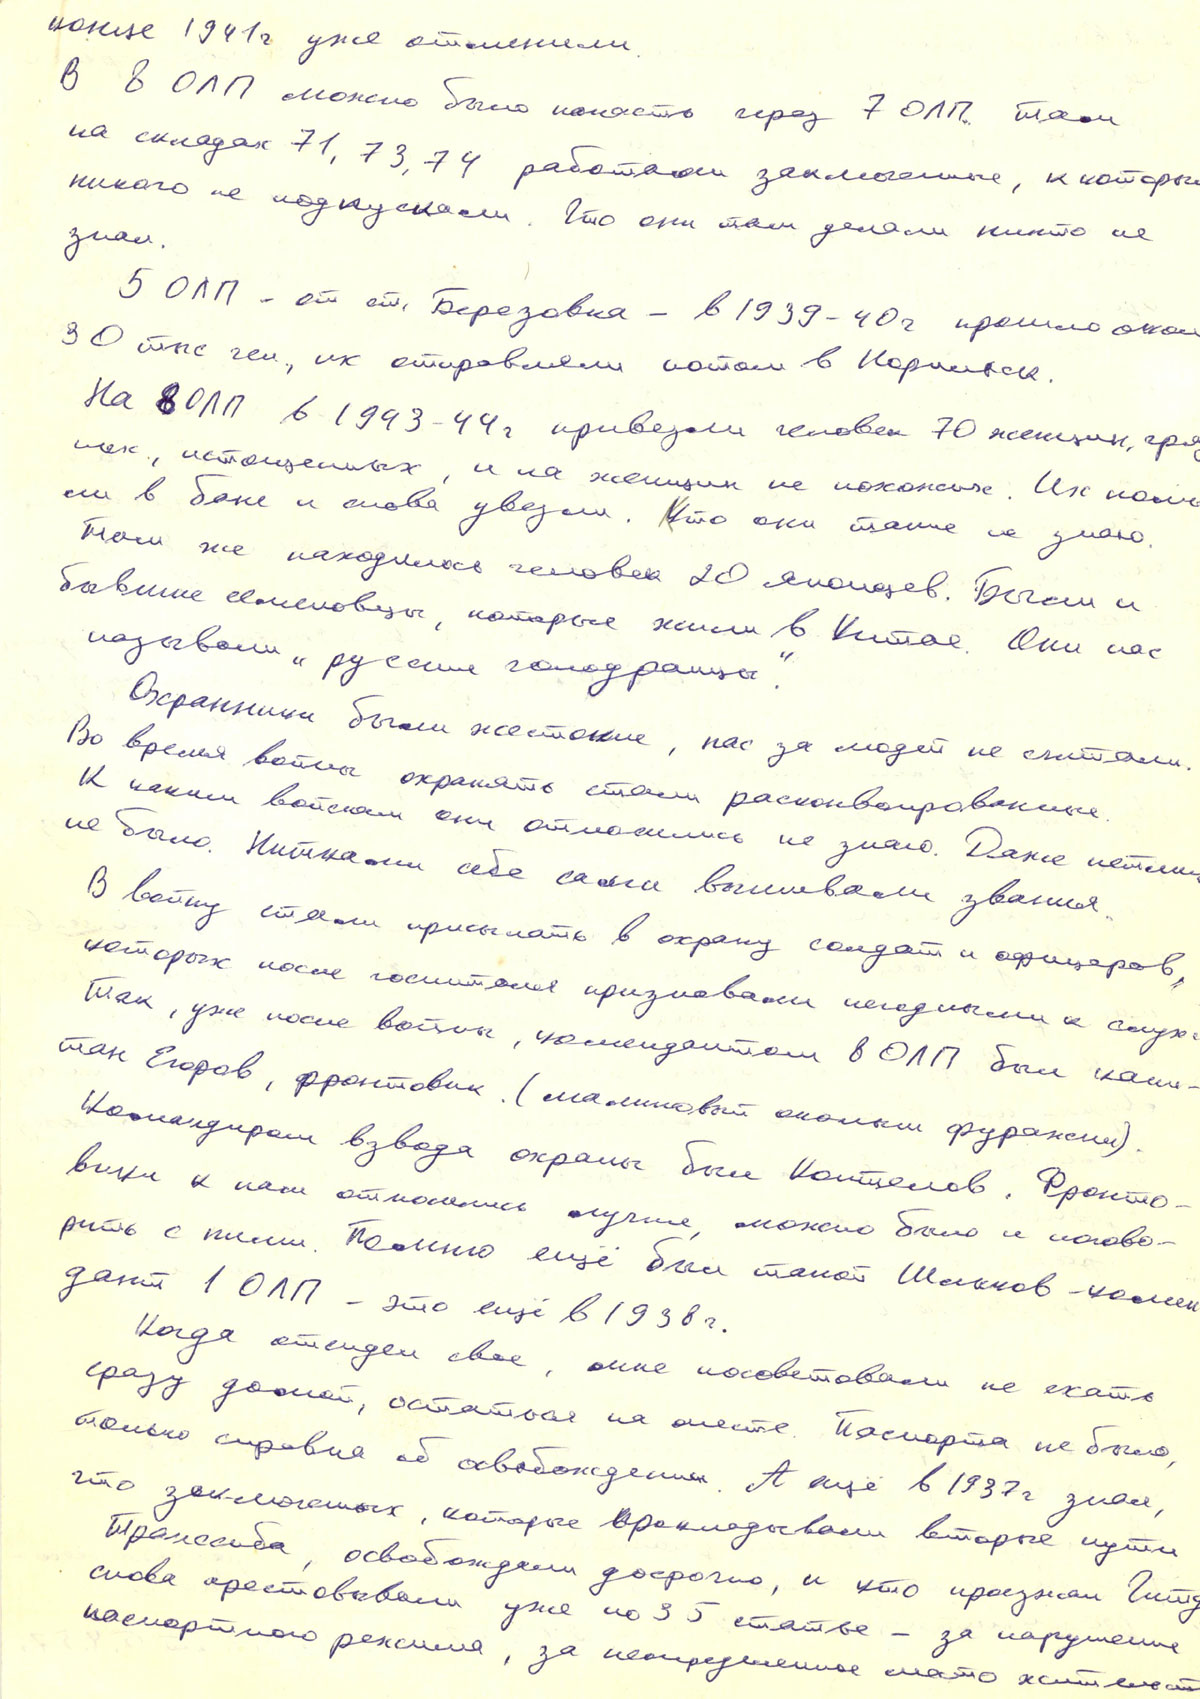 конце 1941г уже отменили.
В 8 ОЛП можно было попасть через 7 ОЛП. Там
на складах 71, 73, 74 работали заключенные, к которым
никого не подпускали. Что они там делали никто не
знал.
5 ОЛП – от ст. Березовка – в 1939-40г прошло окол
30 тыс чел., их отправляли потом в Норильск.
На 8 ОЛП в 1943-44г привезли человек 70 женщин, гряз
ных, истощенных, и на женщин не похожих. Их помы
ли в бане и снова увезли. Кто они такие не знаю.
Там же находилось человек 20 японцев. Были и
бывшие семеновцы, которые жили в Китае. Они нас
называли „русские голодранцы".
Охранники были жестокие, нас за людей не считали.
Во время войны охранять стали расконвоированные.
К каким войскам они относились не знаю. Даже петлиц
не было. Нитками себе сами вышивали звания.
В войну стали присылать в охрану солдат и офицеров,
которых после госпиталя признавали негодными к служ
Так, уже после войны, комендантом 8 ОЛП был капи-
тан Егоров, фронтовик. (малиновый околыш фуражки).
Командиром взвода охраны был Коптелов. Фронто-
вики к нам относились лучше, можно было и погово-
рить с ними. Помню ещё был такой Шальков - комен
дант 1 ОЛП – это ещё в 1938г.
Когда отсидел свое, мне посоветовали не ехать
сразу домой, остаться на месте. Паспорта не было,
только справка об освобождении. А ещё в 1937г знал,
что заключенных, которые прокладывали вторые пути
Транссиба, освобождали досрочно, и кто приезжал
снова арестовывали уже по 35 статье – за нарушение
паспортного режима, за неопределенное место жительст